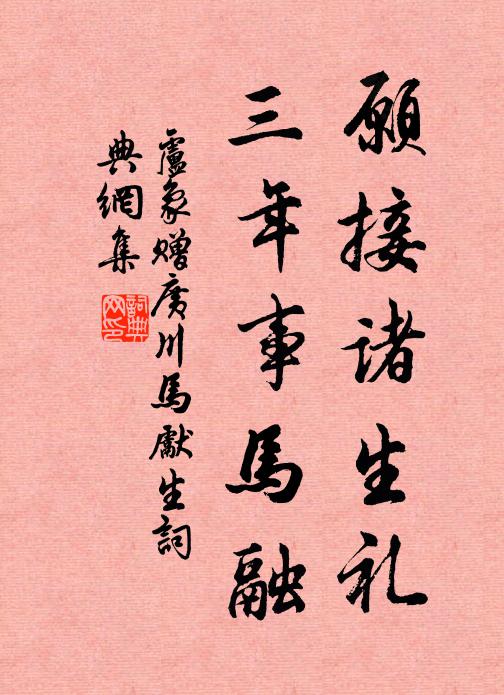 願接諸生礼
三年事馬融
盧象贈廣川馬獻生詞
典網集
詞典
网印